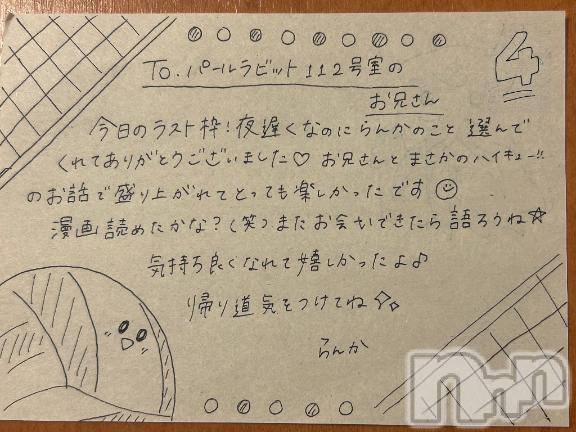 To.パールラビット112号室の
お兄さん
4
今日のラスト枠!夜遅くなのにらんかのこと選んで
くれてありがとうございました♡ お兄さんとまさかのハイキュー!!
のお話で盛り上がれてとっても楽しかったです☺
漫画読めたかな?(笑)またお会いできたら語ろうね☆
気持ち良くなれて嬉しかったよ♪
帰り道気をつけてね
らんか
nnn